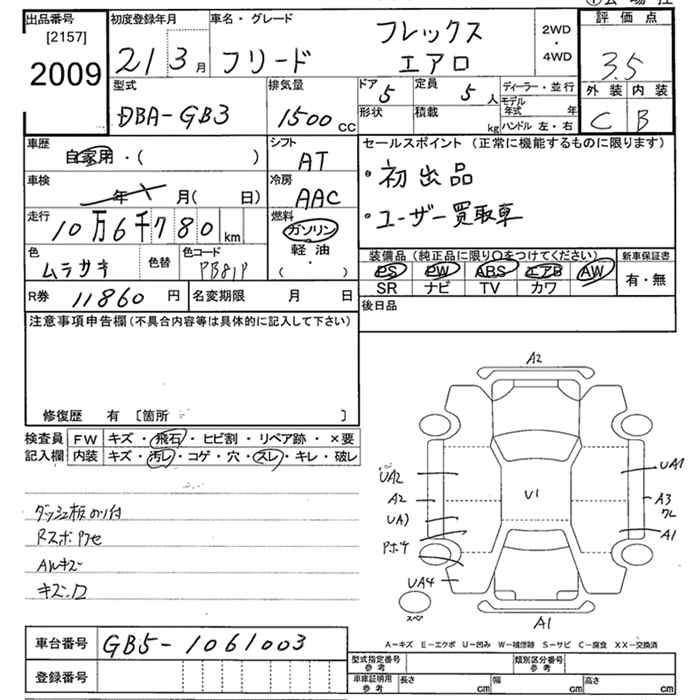 出品番号
[2157]
2009
初度登録年月
21 3月
車名・グレード
フリード
フレックス
エアロ
2WD
・
4WD
評価点
3.5
外装 内装
C B
型式
DBA-GB3
排気量
1500cc
ドア
5
定員
5人
形状
積載
kg
ディーラー・並行
モデル年式 年
ハンドル 左・右
車歴
自家用・( )
シフト
AT
セールスポイント (正常に機能するものに限ります)
・初出品
・ユーザー買取車
車検
年 月( 日)
冷房
AAC
走行
10万6千780km
燃料
ガソリン
軽油
( ・ )
色
ムラサキ
色替
色コード
PB81P
装備品 (純正品に限り○をつけてください)
新車保証書
PS PW ABS エアB AW
有・無
SR ナビ TV カワ
R券 11860円
名変期限 月 日
後日品
注意事項申告欄(不具合内容等は具体的に記入して下さい)
修復歴 有 〔箇所 〕
検査員
記入欄
FW キズ・飛石・ヒビ割・リペア跡・×要
内装 キズ・汚レ・コゲ・穴・スレ・キレ・破レ
ダッシュ板のリ付
Rスポハセ
AWキズ
キズ凹
A2
UA2
A2
UA1
Pホチ
UA4
スペア
U1
UA1
A3
ワレ
A1
A1
A-キズ E-エクボ U-凹み W-補修跡 S-サビ C-腐食 XX-交換済
車台番号
GB5-1061003
登録番号
型式指定番号
参考
類別区分番号
参考
車庫証明用
参考
長さ cm
幅 cm
高さ cm